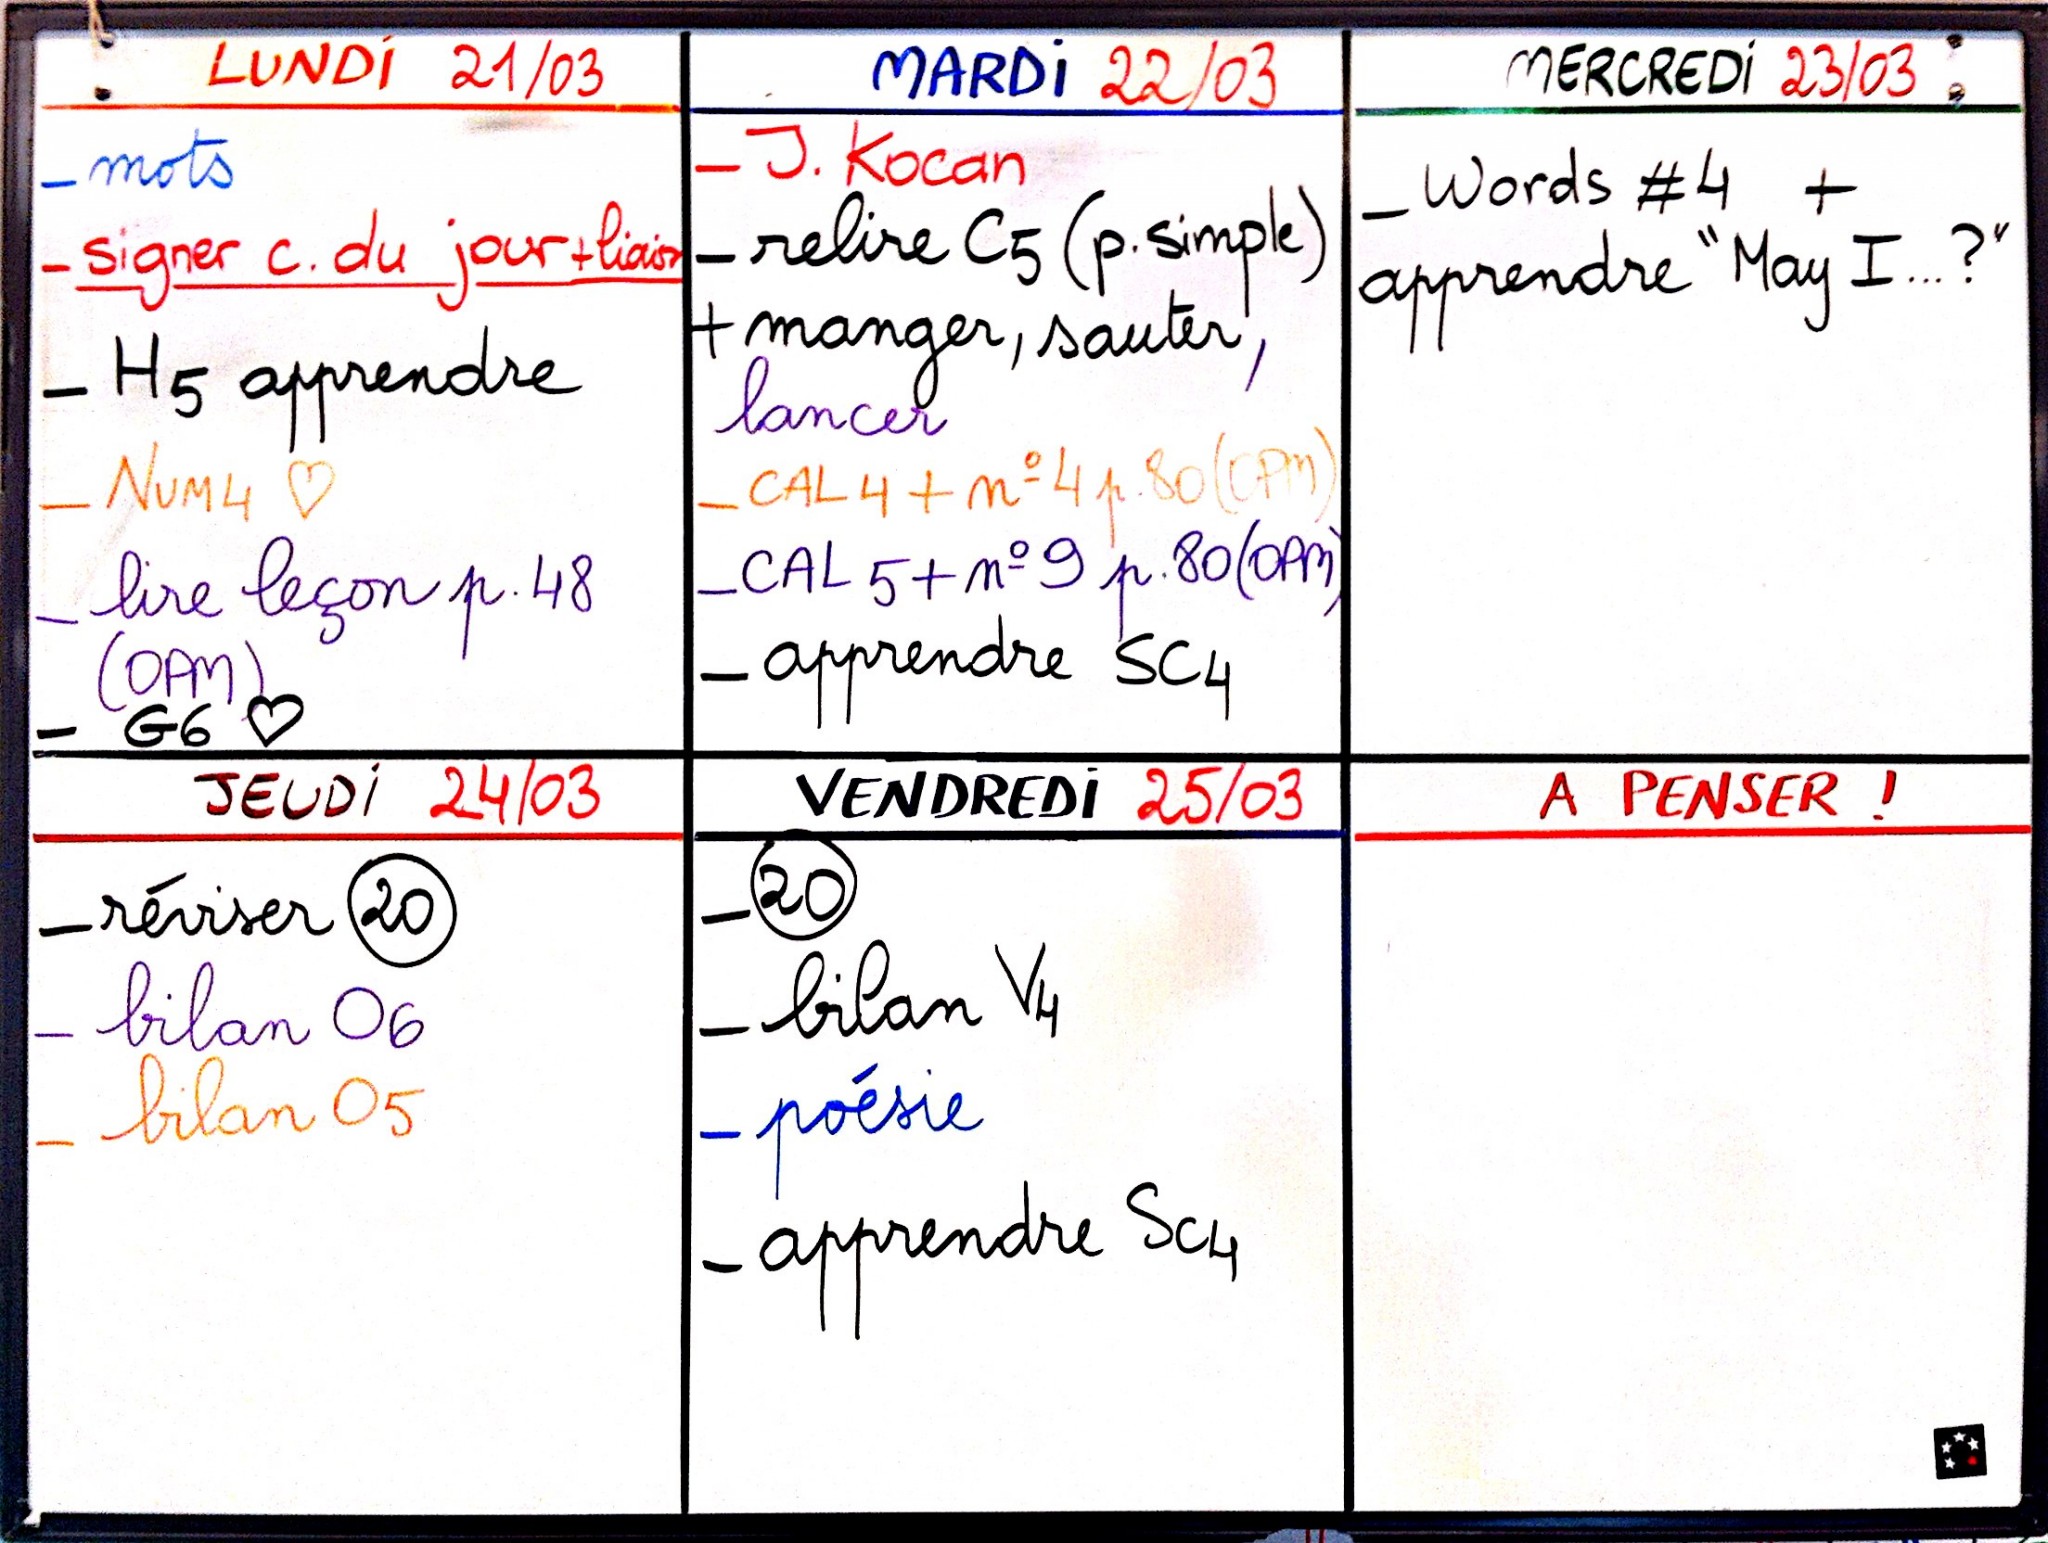 LUNDI 21/03
- mots
- signer c. du jour + liaison
- H5 apprendre
- NUM4 ♡
- lire leçon p. 48
(OPM)
- G6 ♡
MARDI 22/03
- J. Kocan
- relire C5 (p. simple)
+ manger, sauter,
lancer
- CAL 4 + nº 4 p. 80 (OPM)
- CAL 5 + nº 9 p. 80 (OPM)
- apprendre SC4
MERCREDI 23/03
- Words #4 +
apprendre "May I...?"
JEUDI 24/03
- réviser 20
- bilan O6
- bilan O5
VENDREDI 25/03
- 20
- bilan V4
- poésie
- apprendre Sc4
A PENSER !